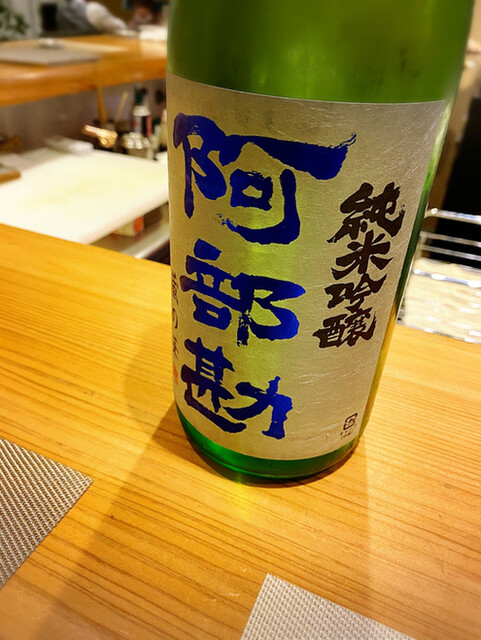 純米吟醸
阿部勘